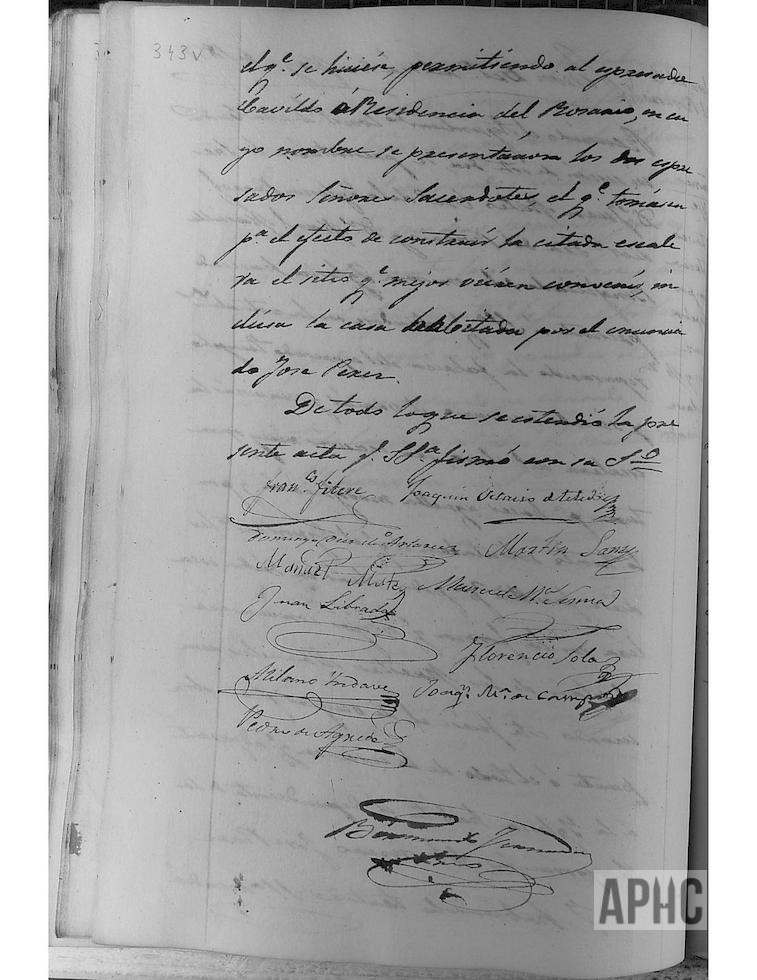 343v
el qe. se hiciése, permitiendo al espresado
Cavildo ó Residencia del Rosario, en cu
yo nombre se presentáron los dos espre
sados Señores Sacerdotes, el qe. tomásen
pa. el efecto de construir la citada escale
ra el sitio qe. mejor viésen convenir, in
clusa la casa habitada por el enuncia
do Jose Perez.
De todo lo que se estendió la pre
sente acta q. SSa. firmó con su Sº
Franco. Fitere Joaquin de
Domingo Martin Sanz
Manuel Mate
Juan Librada
Florencio Sola
Milano Yndave Joaqn. Ma. de
Pedro de Agreda
Bermundo